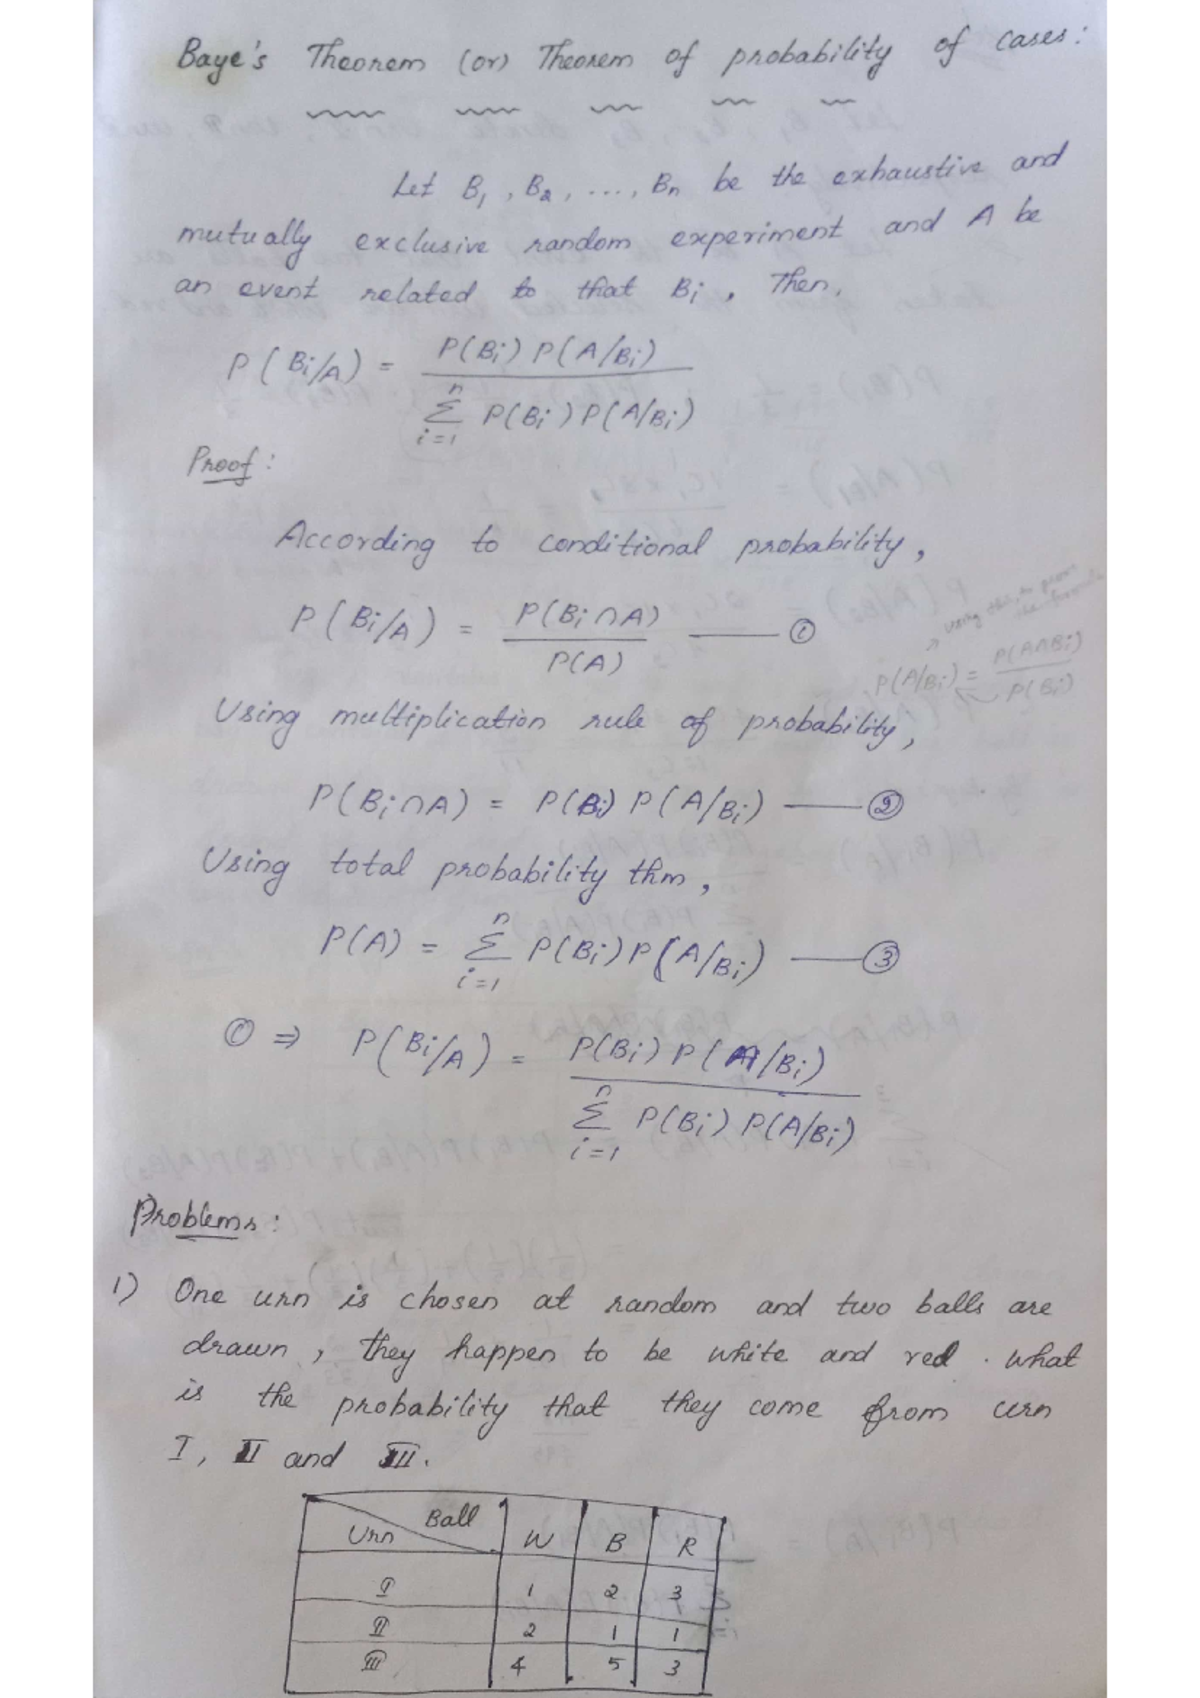 Baye's Theorem (or) Theorem of probability of cases:
Let B₁, B₂, ..., Bn be the exhaustive and
mutually exclusive random experiment and A be
an event related to that Bi, Then,
P(Bi/A) = P(Bi) P(A/Bi) / n Σ i=1 P(Bi) P(A/Bi)
Proof:
According to conditional probability,
P(Bi/A) = P(Bi∩A) / P(A) —— ①
using this to prove
the
P(A/Bi) = P(A∩Bi) / P(Bi)
Using multiplication rule of probability,
P(Bi∩A) = P(Bi) P(A/Bi) —— ②
Using total probability thm,
P(A) = n Σ i=1 P(Bi) P(A/Bi) —— ③
① ⇒ P(Bi/A) = P(Bi) P(A/Bi) / n Σ i=1 P(Bi) P(A/Bi)
Problems:
1) One urn is chosen at random and two balls are
drawn, they happen to be white and red. what
is the probability that they come from urn
I, II and III.
Urn Ball W B R
I 1 2 3
II 2 1 1
III 4 5 3